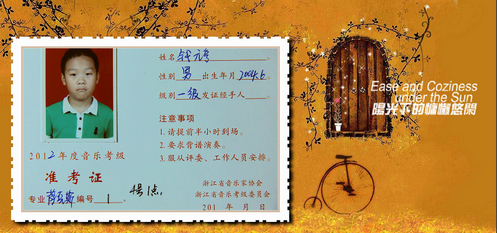 姓名
性别 男 出生年月 2004.6
级别 一级 发证经手人
注意事项
1. 请提前半小时到场。
2. 要求背谱演奏。
3. 服从评委、工作人员安排。
2012年度音乐考级
准考证
专业 萨克斯 编号 1
浙江省音乐家协会
浙江省音乐考级委员会
201 年 月 日
Ease and Coziness
under the Sun
陽光下的慵懶悠閑